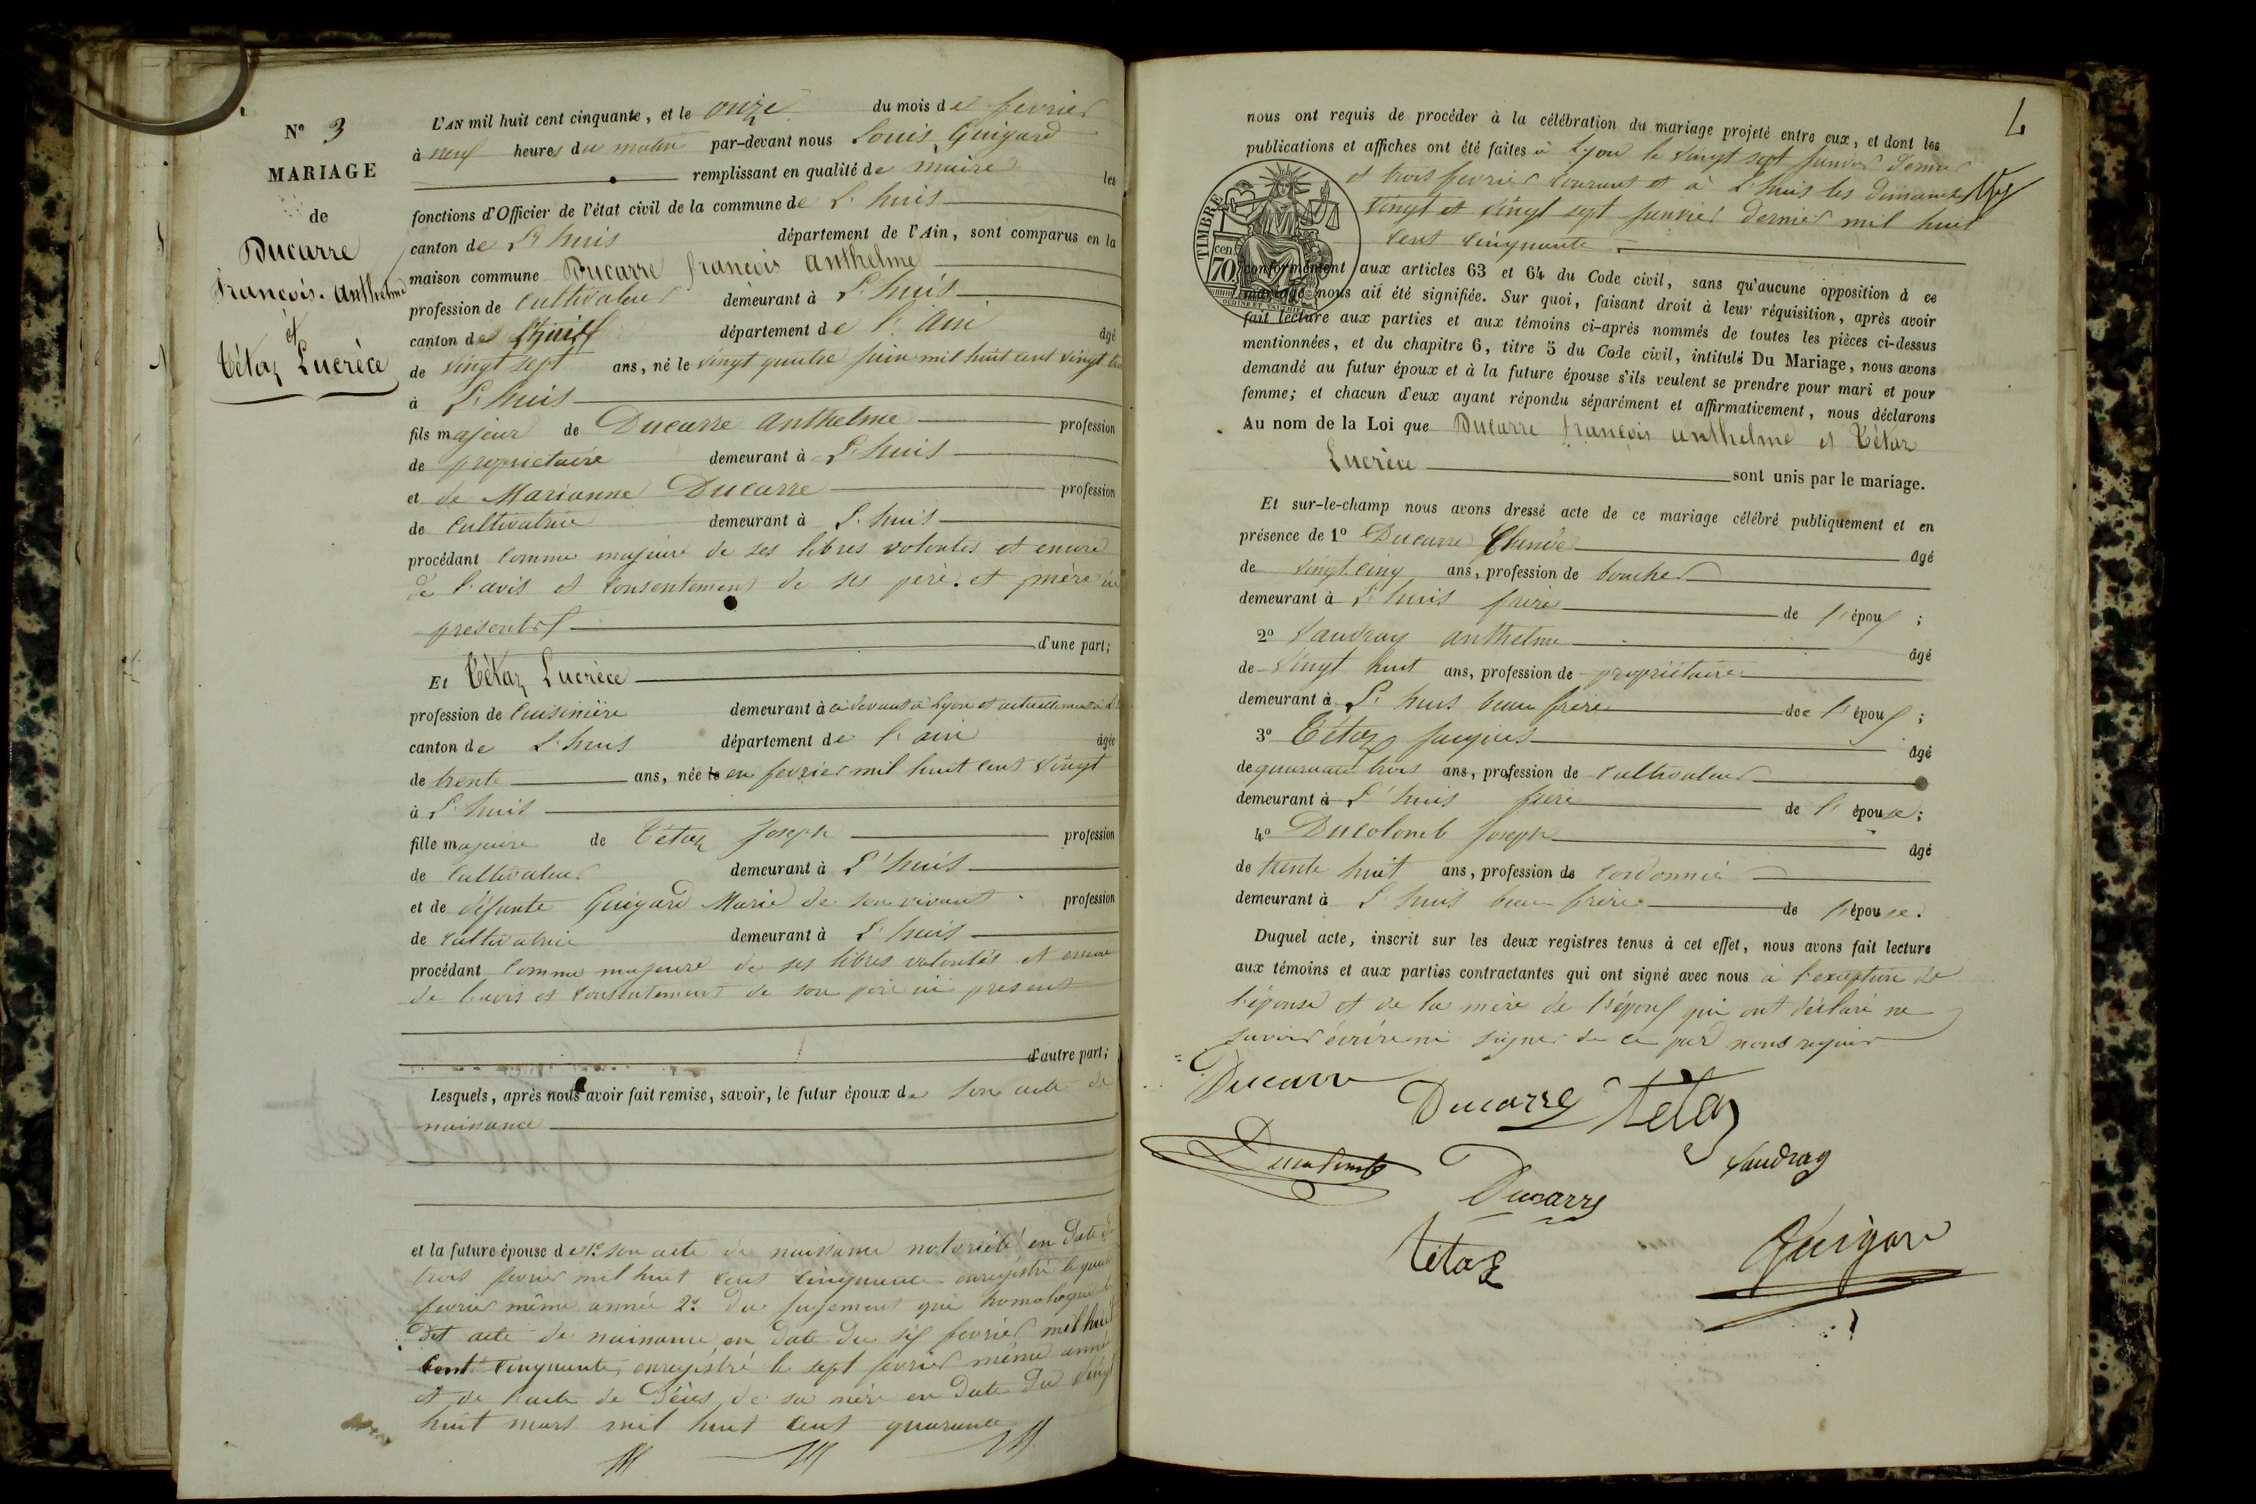 N° 3
MARIAGE
de
Ducarre
françois. anthelme
et
Tétaz Lucrèce
L'AN mil huit cent cinquante, et le onze du mois de fevrier
à neuf heures du matin par-devant nous Louis Guigard
remplissant en qualité de maire les
fonctions d'Officier de l'état civil de la commune de L'huis
canton de L'huis département de l'Ain, sont comparus en la
maison commune Ducarre françois anthelme
profession de Cultivateur demeurant à L'huis
canton de L'huis département de l'Ain âgé
de vingt sept ans, né le vingt quatre juin mil huit cent vingt
à L'huis
fils majeur de Ducarre Anthelme profession
de propriétaire demeurant à L'huis
et de Marianne Ducarre profession
de Cultivatrice demeurant à L'huis
procédant comme majeure de ses libres volontés et encore
de l'avis et consentement de ses père et mère ici
présents
d'une part;
Et Tétaz Lucrèce
profession de Cuisinière demeurant à ci devant à Lyon et actuellement à
canton de L'huis département de l'ain âgée
de trente ans, née le en fevrier mil huit cent vingt
à L'huis
fille majeure de Tétaz Joseph profession
de Cultivateur demeurant à L'huis
et de défunte Guigard Marie de son vivant profession
de cultivatrice demeurant à L'huis
procédant comme majeure de ses libres volontés et encore
de l'avis et consentement de son père ici présent
d'autre part;
Lesquels, après nous avoir fait remise, savoir, le futur époux de son acte de
naissance
et la future épouse de 1° son acte de naissance notoriété en date de
trois fevrier mil huit cent cinquante enregistré le
fevrier même année 2° du jugement qui homologue
dit acte de naissance en date du six fevrier mil huit
cent cinquante, enregistré le sept fevrier même année
et de l'acte de décès de sa mère en date du vingt
huit mars mil huit cent quarante
4
nous ont requis de procéder à la célébration du mariage projeté entre eux, et dont les
publications et affiches ont été faites à Lyon le vingt sept janvier dernier
et trois fevrier courant et à L'huis les dimanches
vingt et vingt sept janvier dernier mil huit
cent cinquante
TIMBRE
70 cen
conformément aux articles 63 et 64 du Code civil, sans qu'aucune opposition à ce
mariage nous ait été signifiée. Sur quoi, faisant droit à leur réquisition, après avoir
fait lecture aux parties et aux témoins ci-après nommés de toutes les pièces ci-dessus
mentionnées, et du chapitre 6, titre 5 du Code civil, intitulé Du Mariage, nous avons
demandé au futur époux et à la future épouse s'ils veulent se prendre pour mari et pour
femme; et chacun d'eux ayant répondu séparément et affirmativement, nous déclarons
Au nom de la Loi que Ducarre françois anthelme et Tétaz
Lucrèce sont unis par le mariage.
Et sur-le-champ nous avons dressé acte de ce mariage célébré publiquement et en
présence de 1° Ducarre âgé
de vingt cinq ans, profession de boucher
demeurant à L'huis frère de l'époux;
2° Vaudray anthelme âgé
de vingt huit ans, profession de propriétaire
demeurant à L'huis beau frère de l'époux;
3° Tétaz Jacques âgé
de quarante trois ans, profession de cultivateur
demeurant à L'huis frère de l'épouse;
4° Ducolomb Joseph âgé
de trente huit ans, profession de cordonnier
demeurant à L'huis beau frère de l'épouse.
Duquel acte, inscrit sur les deux registres tenus à cet effet, nous avons fait lecture
aux témoins et aux parties contractantes qui ont signé avec nous à l'exception de
l'épouse et de la mère de l'époux qui ont déclaré ne
savoir écrire ni signer de ce par nous requis
Ducarre
Ducarre tétaz
Ducolomb Vaudray
Ducarre
tétaz Guigard